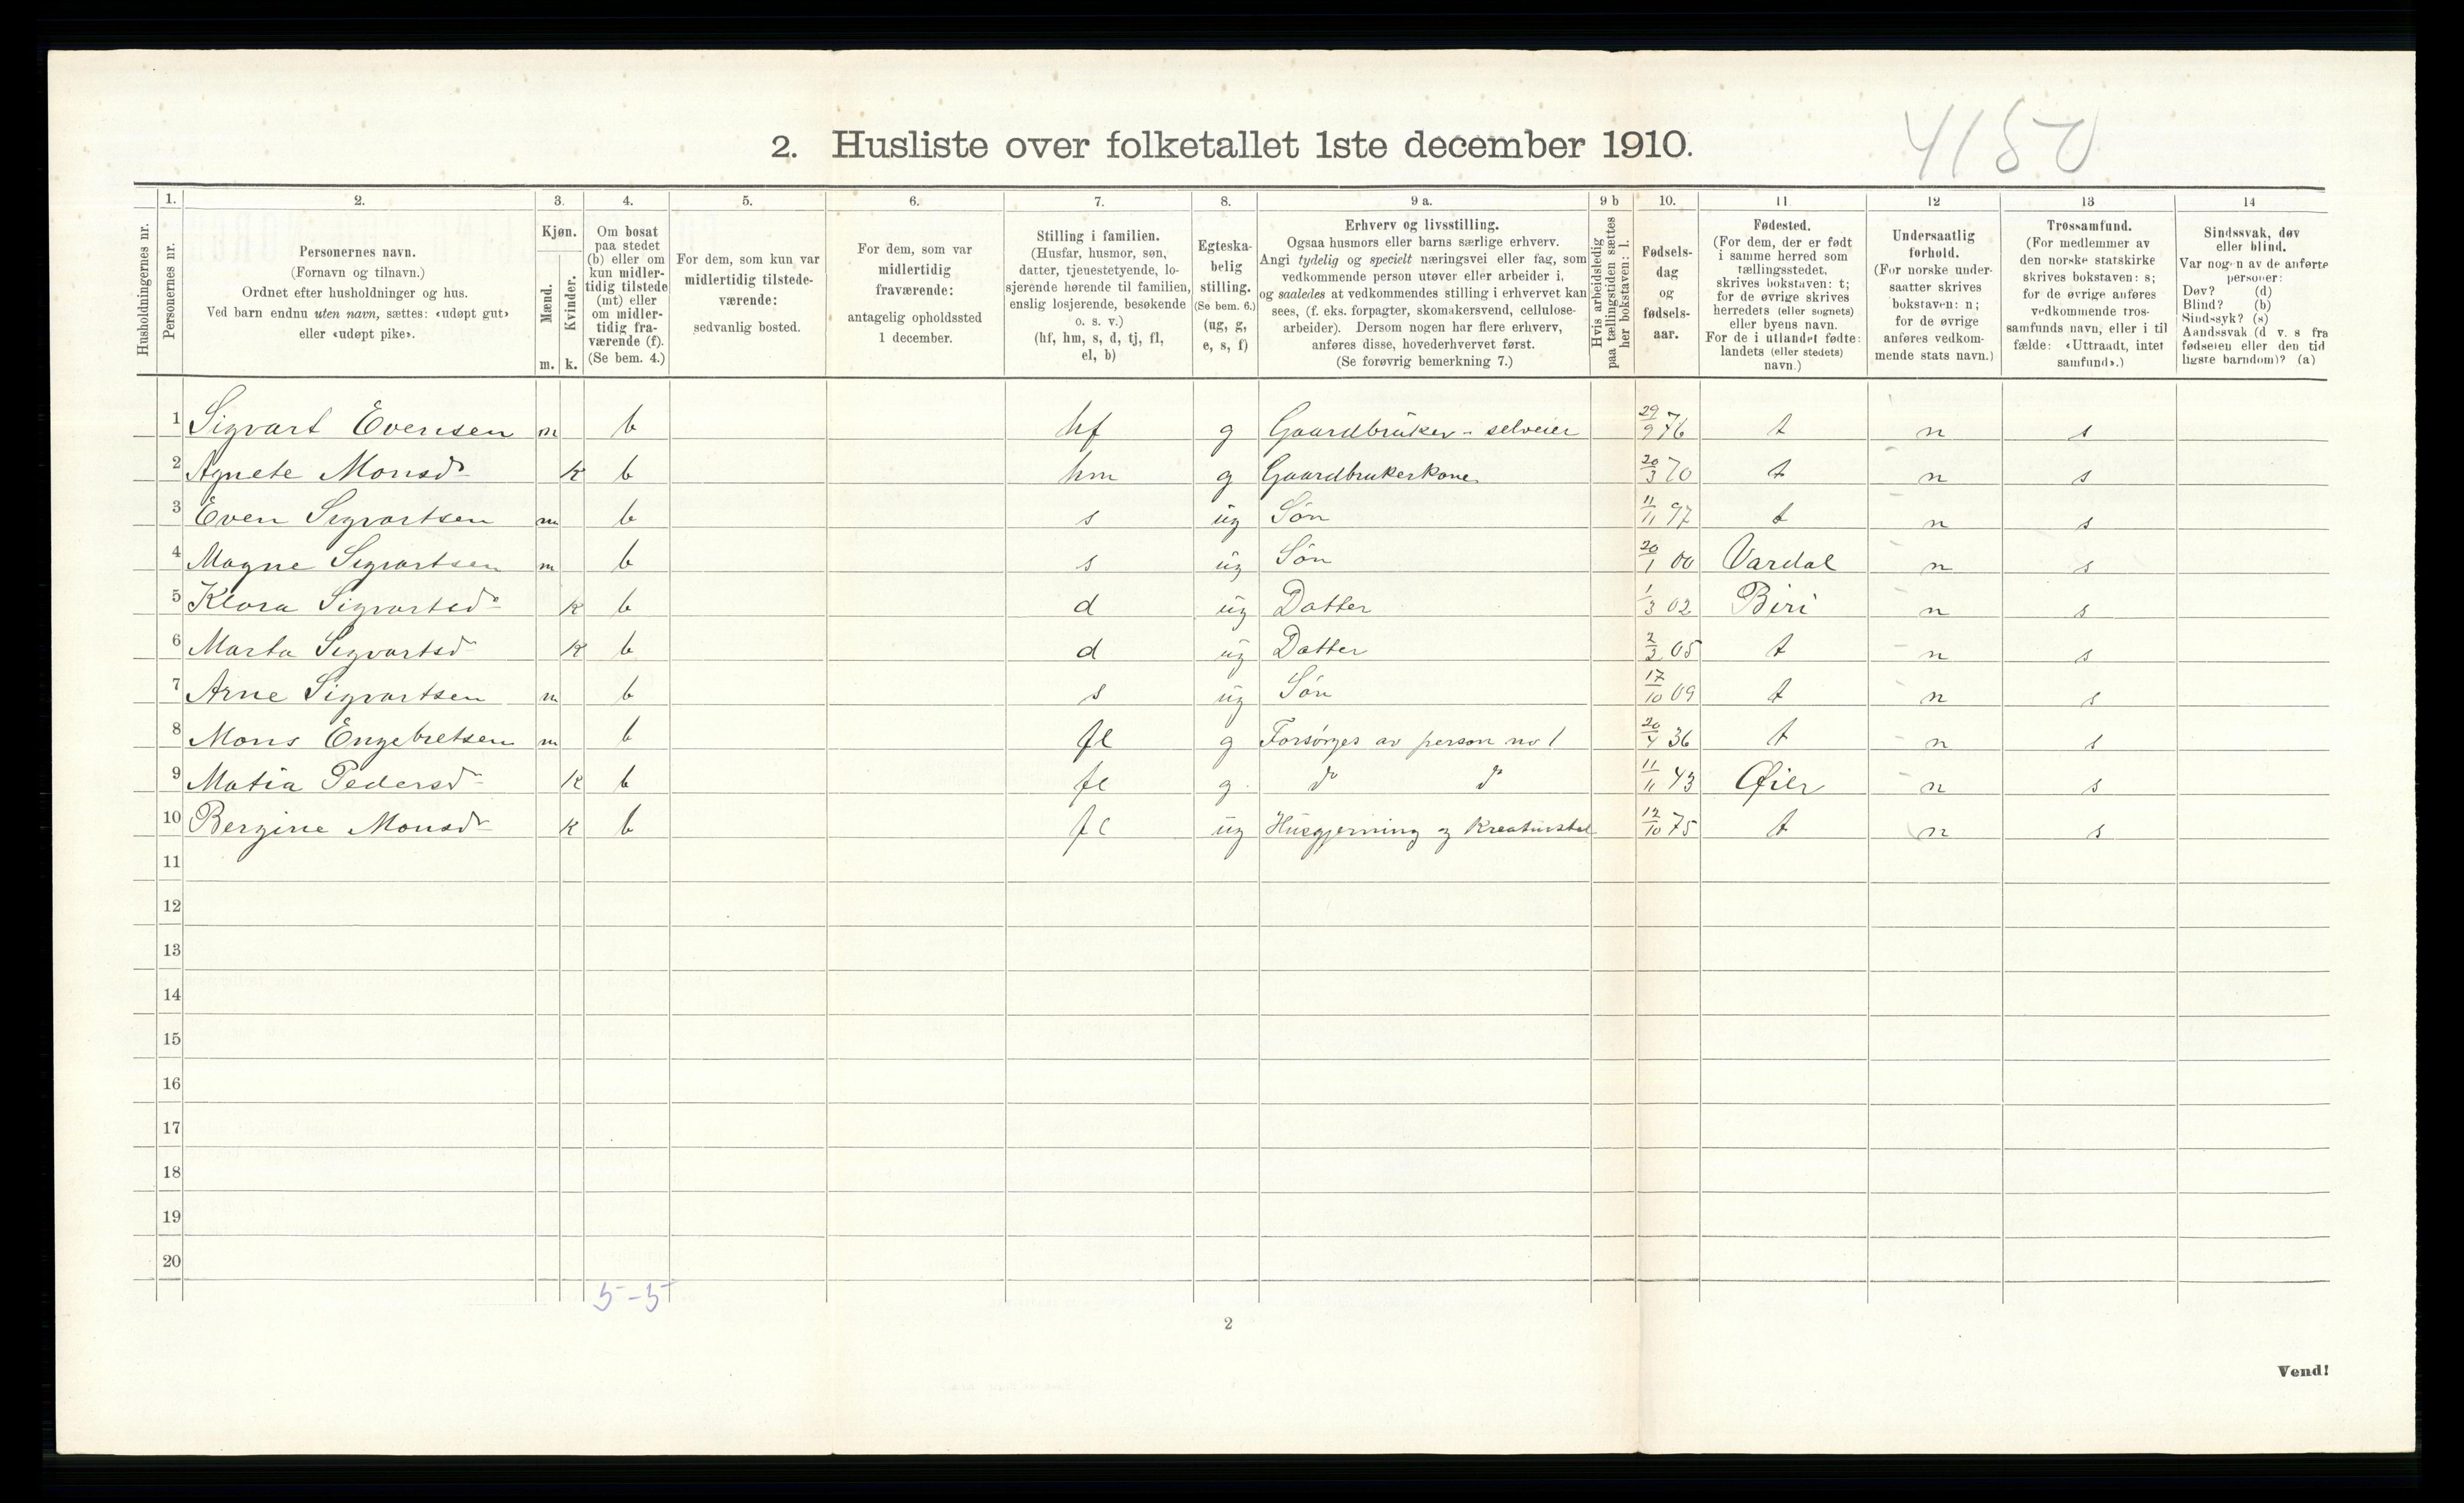 4150
2. Husliste over folketallet 1ste december 1910.
Husholdningernes nr.
1.
Personernes nr.
2.
Personernes navn.
(Fornavn og tilnavn.)
Ordnet efter husholdninger og hus.
Ved barn endnu uten navn, sættes: «udøpt gut»
eller «udøpt pike».
3.
Kjøn.
Mænd.
Kvinder.
m. k.
4.
Om bosat
paa stedet
(b) eller om
kun midler-
tidig tilstede
(mt) eller
om midler-
tidig fra-
værende (f).
(Se bem. 4.)
5.
For dem, som kun var
midlertidig tilstede-
værende:
sedvanlig bosted.
6.
For dem, som var
midlertidig
fraværende:
antagelig opholdssted
1 december.
7.
Stilling i familien.
(Husfar, husmor, søn,
datter, tjenestetyende, lo-
sjerende hørende til familien,
enslig losjerende, besøkende
o. s. v.)
(hf, hm, s, d, tj, fl,
el, b)
8.
Egteska-
belig
stilling.
(Se bem. 6.)
(ug, g,
e, s, f)
9 a.
Erhverv og livsstilling.
Ogsaa husmors eller barns særlige erhverv.
Angi tydelig og specielt næringsvei eller fag, som
vedkommende person utøver eller arbeider i,
og saaledes at vedkommendes stilling i erhvervet kan
sees, (f. eks. forpagter, skomakersvend, cellulose-
arbeider). Dersom nogen har flere erhverv,
anføres disse, hovederhvervet først.
(Se forøvrig bemerkning 7.)
9 b
Hvis arbeidsledig
paa tællingstiden sættes
her bokstaven: l.
10.
Fødsels-
dag
og
fødsels-
aar.
11
Fødested.
(For dem, der er født
i samme herred som
tællingsstedet,
skrives bokstaven: t;
for de øvrige skrives
herredets (eller sognets)
eller byens navn.
For de i utlandet fødte:
landets (eller stedets)
navn.)
12
Undersaatlig
forhold.
(For norske under-
saatter skrives
bokstaven: n;
for de øvrige
anføres vedkom-
mende stats navn.)
13
Trossamfund.
(For medlemmer av
den norske statskirke
skrives bokstaven: s;
for de øvrige anføres
vedkommende tros-
samfunds navn, eller i til
fælde: «Uttraadt, intet
samfund».)
14
Sindssvak, døv
eller blind.
Var nogen av de anførte
personer:
Døv? (d)
Blind? (b)
Sindssyk? (s)
Aandssvak (d v. s fra
fødselen eller den tid
ligste barndom)? (a)
1 Sigvart Evensen m b hf g Gaardbruker - selveier 29/9 76 t n s
2 Agnete Monsdr k b hm g Gaardbrukerkone 20/3 70 t n s
3 Even Sigvartsen m b s ug Søn 11/11 97 t n s
4 Magne Sigvartsen m b s ug Søn 20/1 00 Vardal n s
5 Klara Sigvartsdr k b d ug Datter 1/3 02 Biri n s
6 Marta Sigvartsdr k b d ug Datter 2/2 05 t n s
7 Arne Sigvartsen m b s ug Søn 17/10 09 t n s
8 Mons Engebretsen m b fl g Forsørges av person no 1 20/4 36 t n s
9 Matia Pedersdr k b fl g do do 11/11 43 Øier n s
10 Bergine Monsdr k b fl ug Husgjerning og Kreaturstel 12/10 75 t n s
11
12
13
14
15
16
17
18
19
20
5-5
2
Vend!